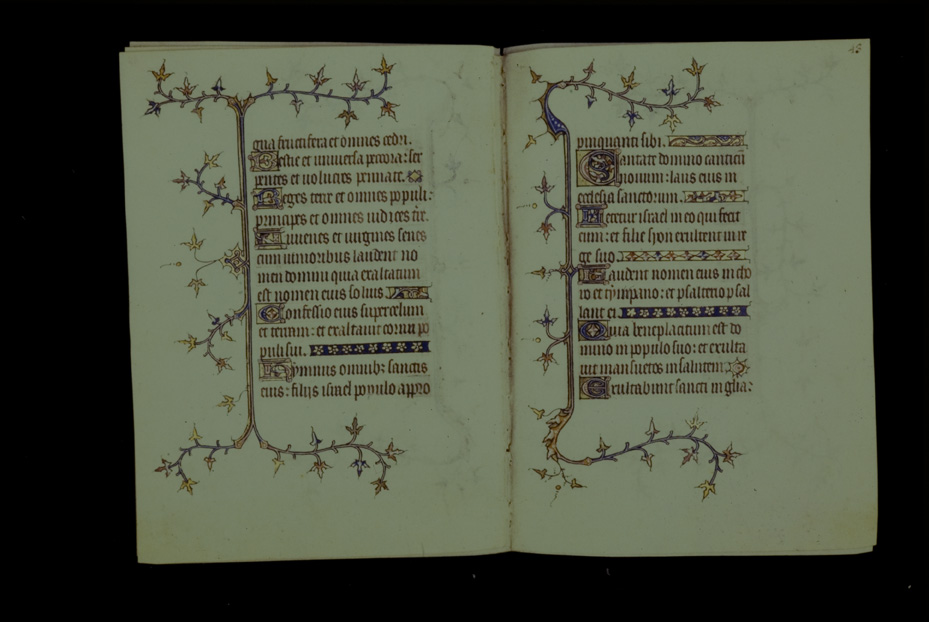 gna fructifera et omnes cedri.
Bestie et universa pecora: ser
pentes et volucres pennate.
Reges terre et omnes populi:
principes et omnes iudices tre.
Iuvenes et virgines senes
cum iunioribus laudent no
men domini quia exaltatum
est nomen eius solius
Confessio eius super celum
et terram: et exaltavit cornu po
puli sui.
Hymnus omnib: sanctis
eius: filijs israel populo appro
45
pinquanti sibi.
Cantate domino canticū
novum: laus eius in
ecclesia sanctorum.
Letetur israel in eo qui fecit
eum: et filie syon exultent in re
ge suo.
Laudent nomen eius in cho
ro et tympano: et psalterio psal
lant ei.
Quia beneplacitum est do
mino in populo suo: et exalta
vit mansuetos in salutem
Exultabunt sancti in glia: